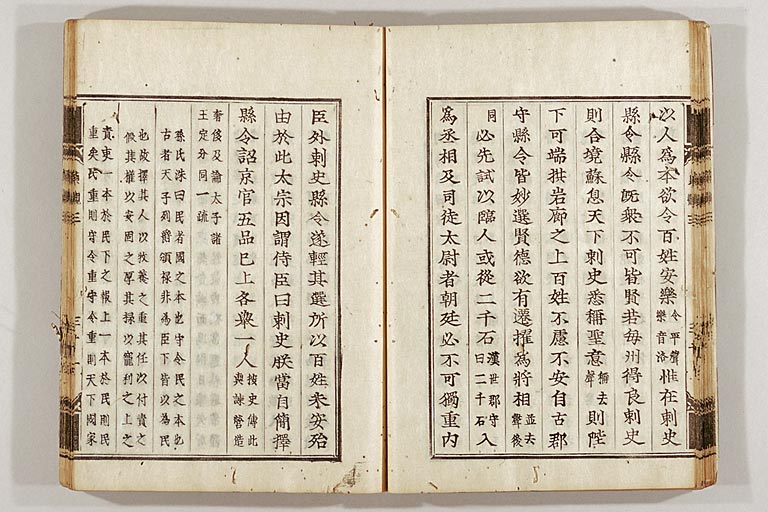 以人爲本欲令百姓安樂令平聲樂音洛惟在刺史
縣令縣令旣衆不可皆賢若每州得良刺史
則合境蘇息天下刺史悉稱聖意稱去聲則陛
下可端拱岩廊之上百姓不慮不安自古郡
守縣令皆妙選賢德欲有遷擢爲將相並去聲後
同必先試以臨人或從二千石漢世郡守曰二千石入
爲丞相及司徒太尉者朝廷必不可獨重內
臣外刺史縣令遂輕其選所以百姓未安殆
由於此太宗因謂侍臣曰刺史朕當自簡擇
縣令詔京官五品已上各擧一人按史傳此奏諫營造
奢侈及論太子諸
王定分同一疏
孫氏洙曰民者國之本也守令民之本也
古者天子列爵頒祿非爲臣下皆以為民
也故擇其人以牧養之重其任以付責之
假其權以安固之厚其祿以寵利之上之
責吏一本於民下之報上一本於民則民
重矣民重則守令重守令重則天下國家